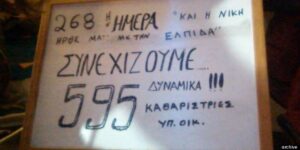 268 Η ΗΜΕΡΑ "ΚΑΙ Η ΝΙΚΗ
ΗΡΘΕ ΜΑΖΙ ΜΕ ΤΗΝ ΕΛΠΙΔΑ"
ΣΥΝΕΧΙΖΟΥΜΕ...
595 ΔΥΝΑΜΙΚΑ !!!
ΚΑΘΑΡΙΣΤΡΙΕΣ
ΥΠ. ΟΙΚ.
archive